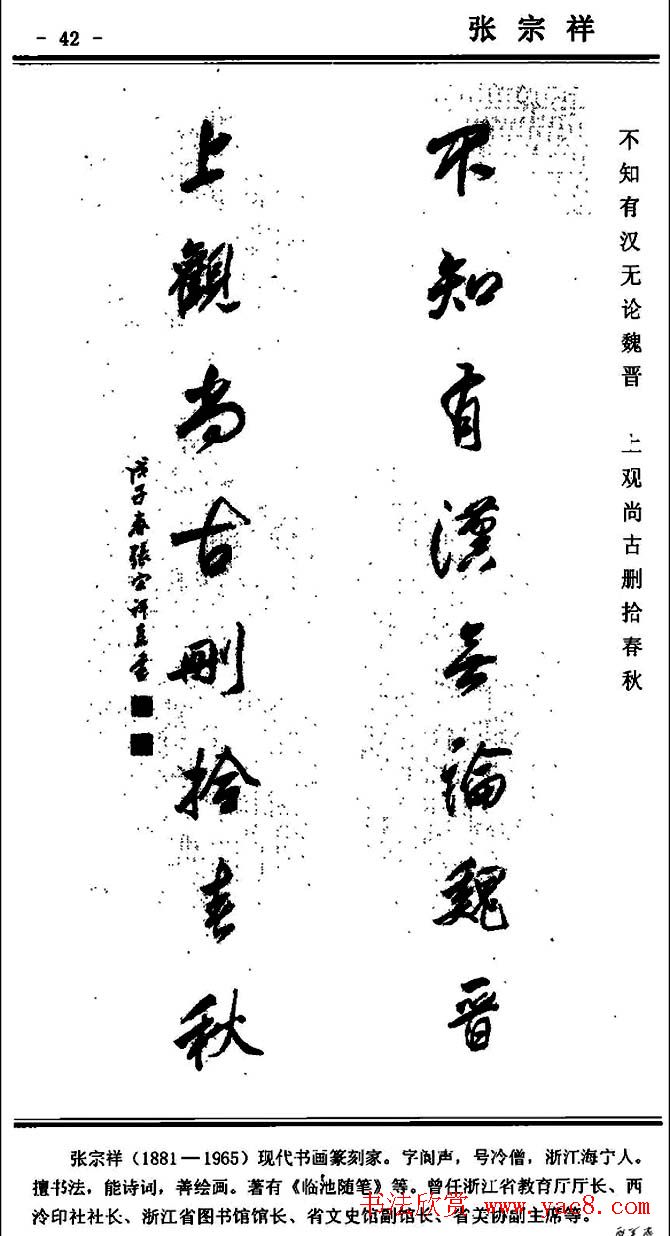 - 42 -
张宗祥
不知有汉无论魏晋 上观尚古删拾春秋
不知有漢無論魏晉
上觀尚古刪拾春秋
戊子春張宗祥
张宗祥（1881—1965）现代书画篆刻家。字阆声，号冷僧，浙江海宁人。
擅书法，能诗词，善绘画。著有《临池随笔》等。曾任浙江省教育厅厅长、西
泠印社社长、浙江省图书馆馆长、省文史馆副馆长、省美协副主席等。
书法欣赏 www.yac8.com